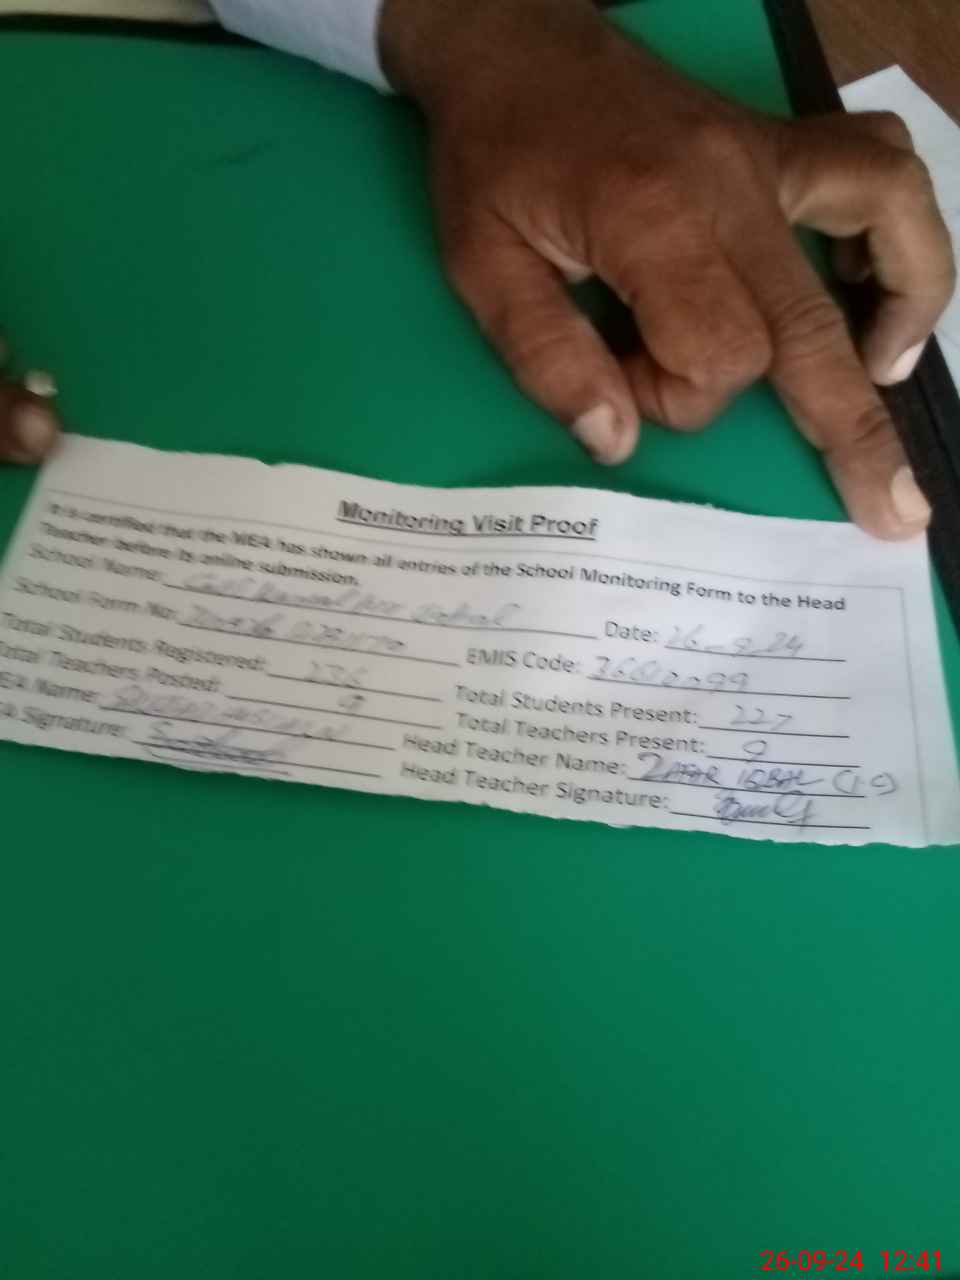 Monitoring Visit Proof
It is certified that the MEA has shown all entries of the School Monitoring Form to the Head
Teacher before its online submission.
School Name: Date: 26-9-24
School Form No: EMIS Code: 36610099
Total Students Registered: 236 Total Students Present: 227
Total Teachers Posted: 9 Total Teachers Present: 9
MEA Name: Head Teacher Name: ZAFAR IQBAL (I.C)
MEA Signature: Head Teacher Signature:
26-09-24 12:41